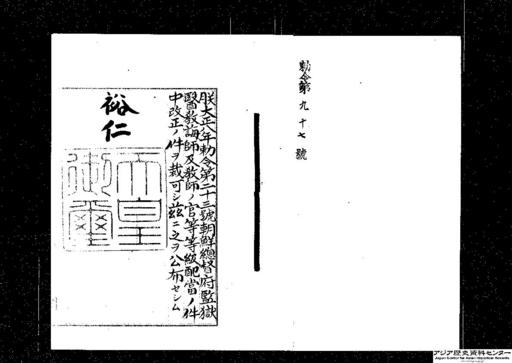 勅令第九十七號
朕大正八年勅令第二十三號朝鮮總督府監獄
醫教誨師及教師ノ官等等級配當ノ件
中改正ノ件ヲ裁可シ茲ニ之ヲ公布セシム
裕仁
天皇
御璽
アジア歴史資料センター
Japan Center for Asian Historical Records